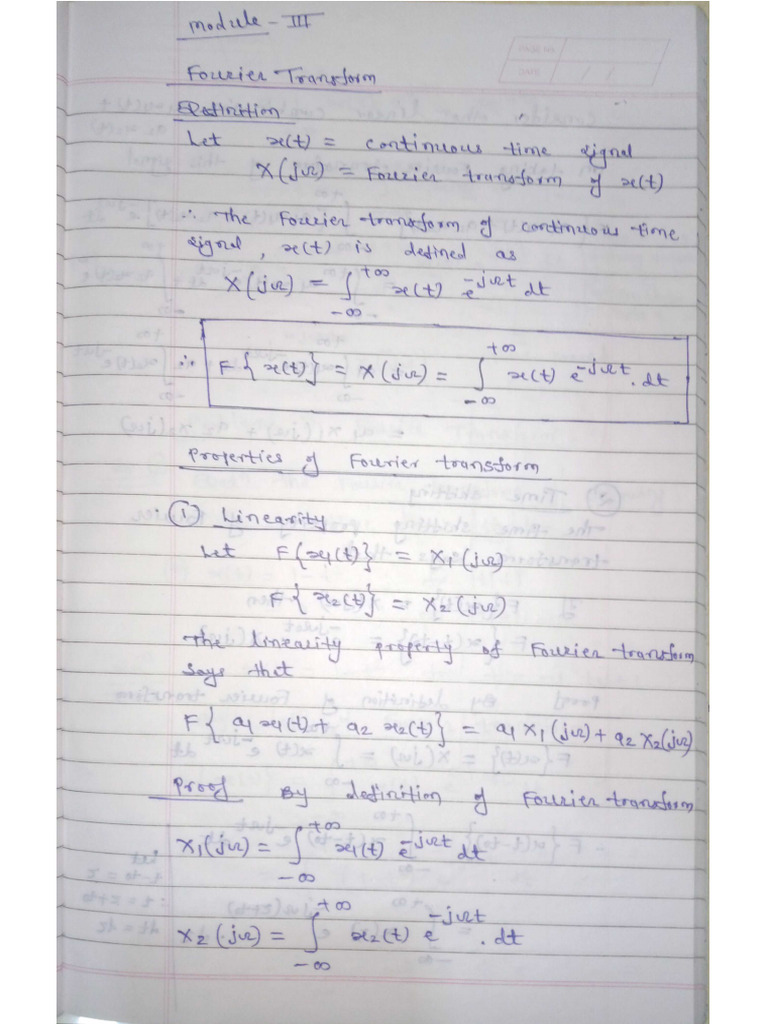 Module - III
Fourier Transform
Definition
Let x(t) = continuous time signal
X(jΩ) = Fourier transform of x(t)
∴ The Fourier transform of continuous time
signal, x(t) is defined as
X(jΩ) = ∫_{-∞}^{+∞} x(t) e^{-jΩt} dt
∴ F{x(t)} = X(jΩ) = ∫_{-∞}^{+∞} x(t) e^{-jΩt}. dt
Properties of Fourier transform
① Linearity
Let F{x1(t)} = X1(jΩ)
F{x2(t)} = X2(jΩ)
The linearity property of Fourier transform
says that
F{a1 x1(t) + a2 x2(t)} = a1 X1(jΩ) + a2 X2(jΩ)
Proof By definition of Fourier transform
X1(jΩ) = ∫_{-∞}^{+∞} x1(t) e^{-jΩt} dt
X2(jΩ) = ∫_{-∞}^{+∞} x2(t) e^{-jΩt}. dt